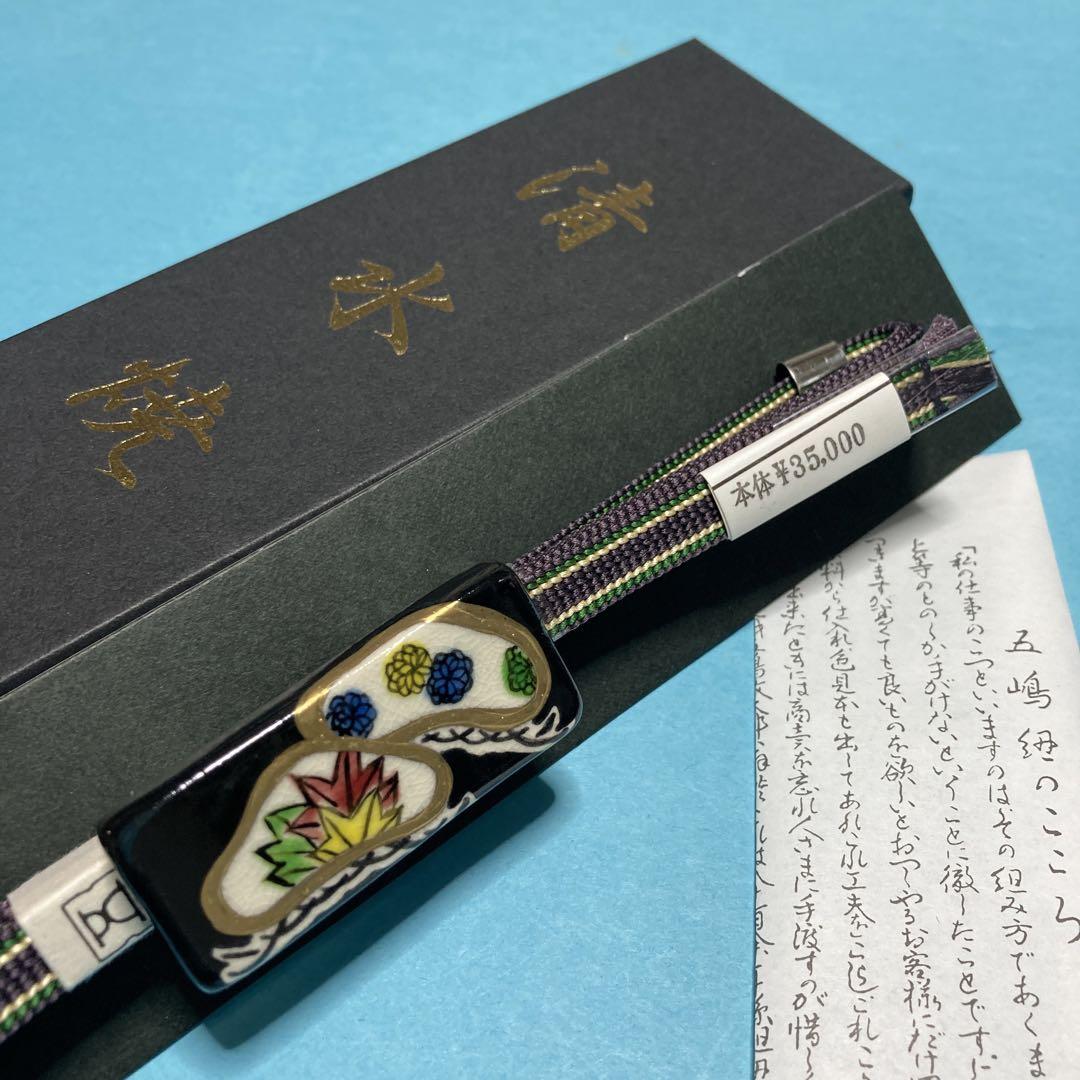 清水焼
本体¥35,000
五嶋紐のこころ
「私の仕事のこつといいますのはその組み方であくま
上等のものしか手がけないということに徹したことです
つきますが高くても良いものを欲しいとおっしゃるお客様にだけ
料から仕入れ色見本も出してあれこれ工夫をこらしこれこ
出来たときには商売を忘れ人さまに手渡すのが惜し